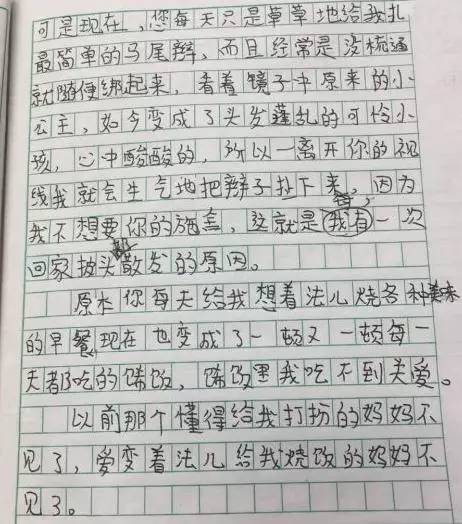 可是现在，您每天只是草草地给我扎
最简单的马尾辫，而且经常是没梳通
就随便绑起来，看着镜子中原来的小
公主，如今变成了头发蓬乱的可怜小
孩，心中酸酸的，所以一离开你的视
线我就会生气地把辫子扯下来，因为
我不想要你的施舍，这就是我每一次
回家披头散发的原因。
原本你每天给我想着法儿烧各种美味
的早餐现在也变成了一顿又一顿每一
天都吃的馊饭，馊饭里我吃不到关爱。
以前那个懂得给我打扮的妈妈不
见了，爱变着法儿给我烧饭的妈妈不
见了。